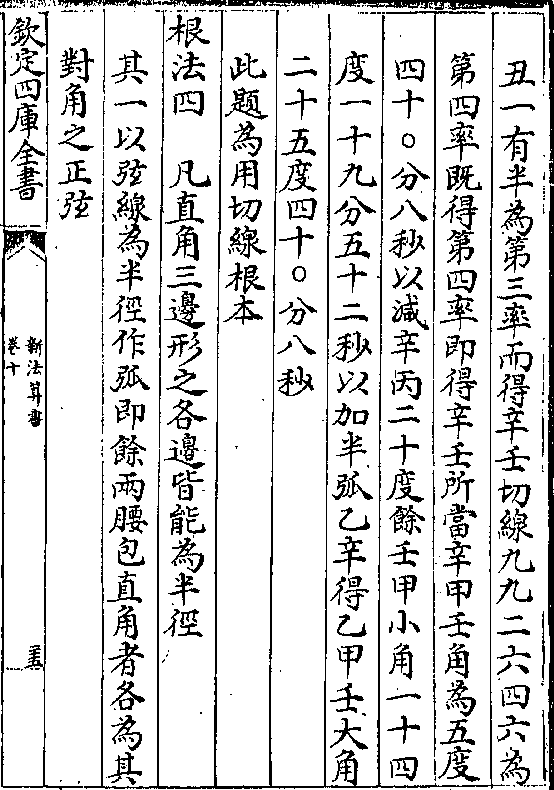 丑一有半為第三率而得辛壬切線九九二六四六為
第四率既得第四率即得辛壬所當辛甲壬角為五度
四十〇分八秒以減辛丙二十度餘壬甲小角一十四
度一十九分五十二秒以加半弧乙辛得乙甲壬大角
二十五度四十〇分八秒
此題為用切線根本
根法四　凡直角三邊形之各邊皆能為半徑
其一以弦線為半徑作弧即餘兩腰包直角者各為其
對角之正弦
欽定四庫全書
新法算書
卷十